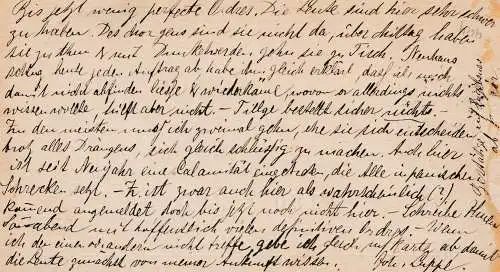 Bis jetzt wenig perfecte Ordres. Die Leute sind hier sehr schwer
zu haben. Des morgens sind sie nicht da, über Mittag haben
sie zu thun & mit Dunkelwerden gehn sie zu Tisch. Neuhaus
schlug heute jeden Auftrag ab habe ihm gleich erklärt, dass ich mich
damit nicht abfinden liesse & wiederkäme, wovon er allerdings nichts
wissen wollte, hilft aber nicht. - Tillge bestellt sicher nichts.
Zu den meisten muss ich zweimal gehn, ehe sie sich entscheiden
trotz alles Drängens, sich gleich schlüssig zu machen. Auch hier
ist seit Neujahr eine Calamität eingetreten, die Alle in panischen
Schrecken setzt. - ist zwar auch hier als wahrscheinlich (?)
kommend angemeldet doch bis jetzt noch nicht hier. - Schreibe Ihnen
abend mit hoffentlich vielen definitiven Ordres. Wenn
ich den einen od. andern nicht treffe, gebe ich gleich Karte ab damit
die Leute zunächst von meiner Ankunft wissen.